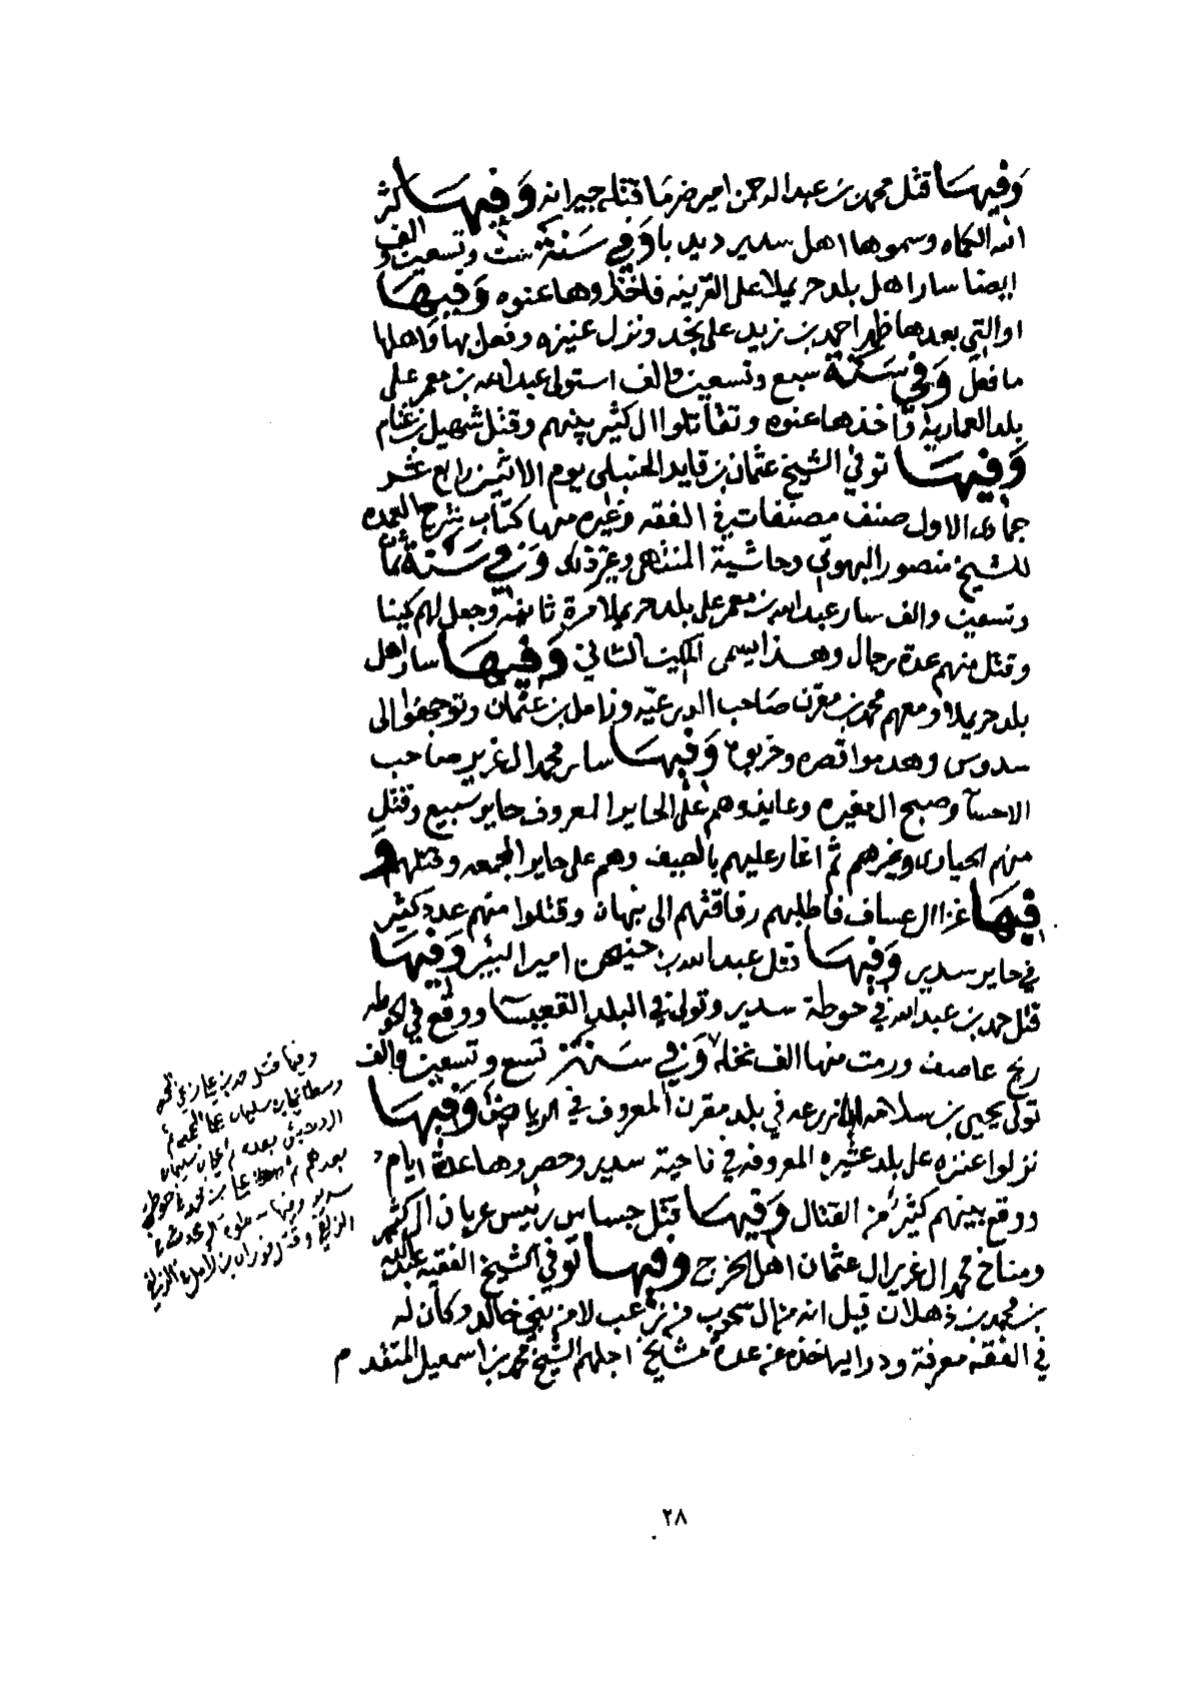 وفيها قتل محمد بن عبد الرحمن امير ضرما قتله جيرانه وفيها كثر
الله الكماه وسموها اهل سدير ديدبا وفي سنة ست وتسعين والف
ايضا سار اهل بلد حريملا على القرينه فاخذوها عنوه وفيها
او التي بعدها ظهر احمد بن زيد على نجد ونزل عنيزه وفعل بها واهلها
ما فعل وفي سنة سبع وتسعين والف استولى عبد الله بن معمر على
بلد العمارية واخذها عنوه وتقاتلوا ال كثير بينهم وقتل شهيل بن غنام
وفيها توفي الشيخ عثمان بن قايد الحنبلي يوم الاثنين رابع عشر
جمادى الاول صنف مصنفات في الفقه وغيره منها كتاب شرح العمده
للشيخ منصور البهوتي وحاشية المنتهى وغير ذلك وفي سنة ثمان
وتسعين والف سار عبد الله بن معمر على بلد حريملا مرة ثانيه وجعل لهم كمينا
وقتل منهم عدة رجال وهذا يسمى الكمين الثاني وفيها سار اهل
بلد حريملا ومعهم محمد بن مقرن صاحب الدرعيه وزامل بن عثمان وتوجهوا الى
سدوس وهدموا قصره وخربوه وفيها سار محمد ال غرير صاحب
الاحسا وصبح ال مغيره وعايذ وهم على الحاير المعروف حاير سبيع وقتل
منهم الخيارى وغيرهم ثم اغار عليهم بالصيف وهم على حاير المجمعه وقتلهم و
فيها غزا ال عساف فاطلبهم رفاقتهم الى نبهان وقتلوا منهم عدد كثير
في حاير سدير وفيها قتل عبد الله بن حنيحن امير البير وفيها
قتل حمد بن عبد الله في حوطة سدير وتولى في البلد القعيسا ووقع في الحوطه
ريح عاصف ورمت منها الف نخله وفي سنة تسع وتسعين والف
تولى يحيى بن سلامه ابا زرعه في بلد مقرن المعروف في الرياض وفيها
نزلوا عنزه على بلد عشيره المعروفه في ناحية سدير وحصروها عدة ايام
ووقع بينهم كثير من القتال وفيها قتل جساس رئيس عربان ال كثير
ومناخ محمد ال غرير ال عثمان اهل الخرج وفيها توفي الشيخ الفقيه عبد الله
بن محمد بن ذهلان قيل انه من ال سحوب من زعب لا من بني خالد وكان له
في الفقه معرفة ودرايه اخذه عن عدة مشايخ اجلهم الشيخ محمد بن اسمعيل المتقدم
وفيها قتل حمد بن
بعدهم
سدير وفيها
٢٨